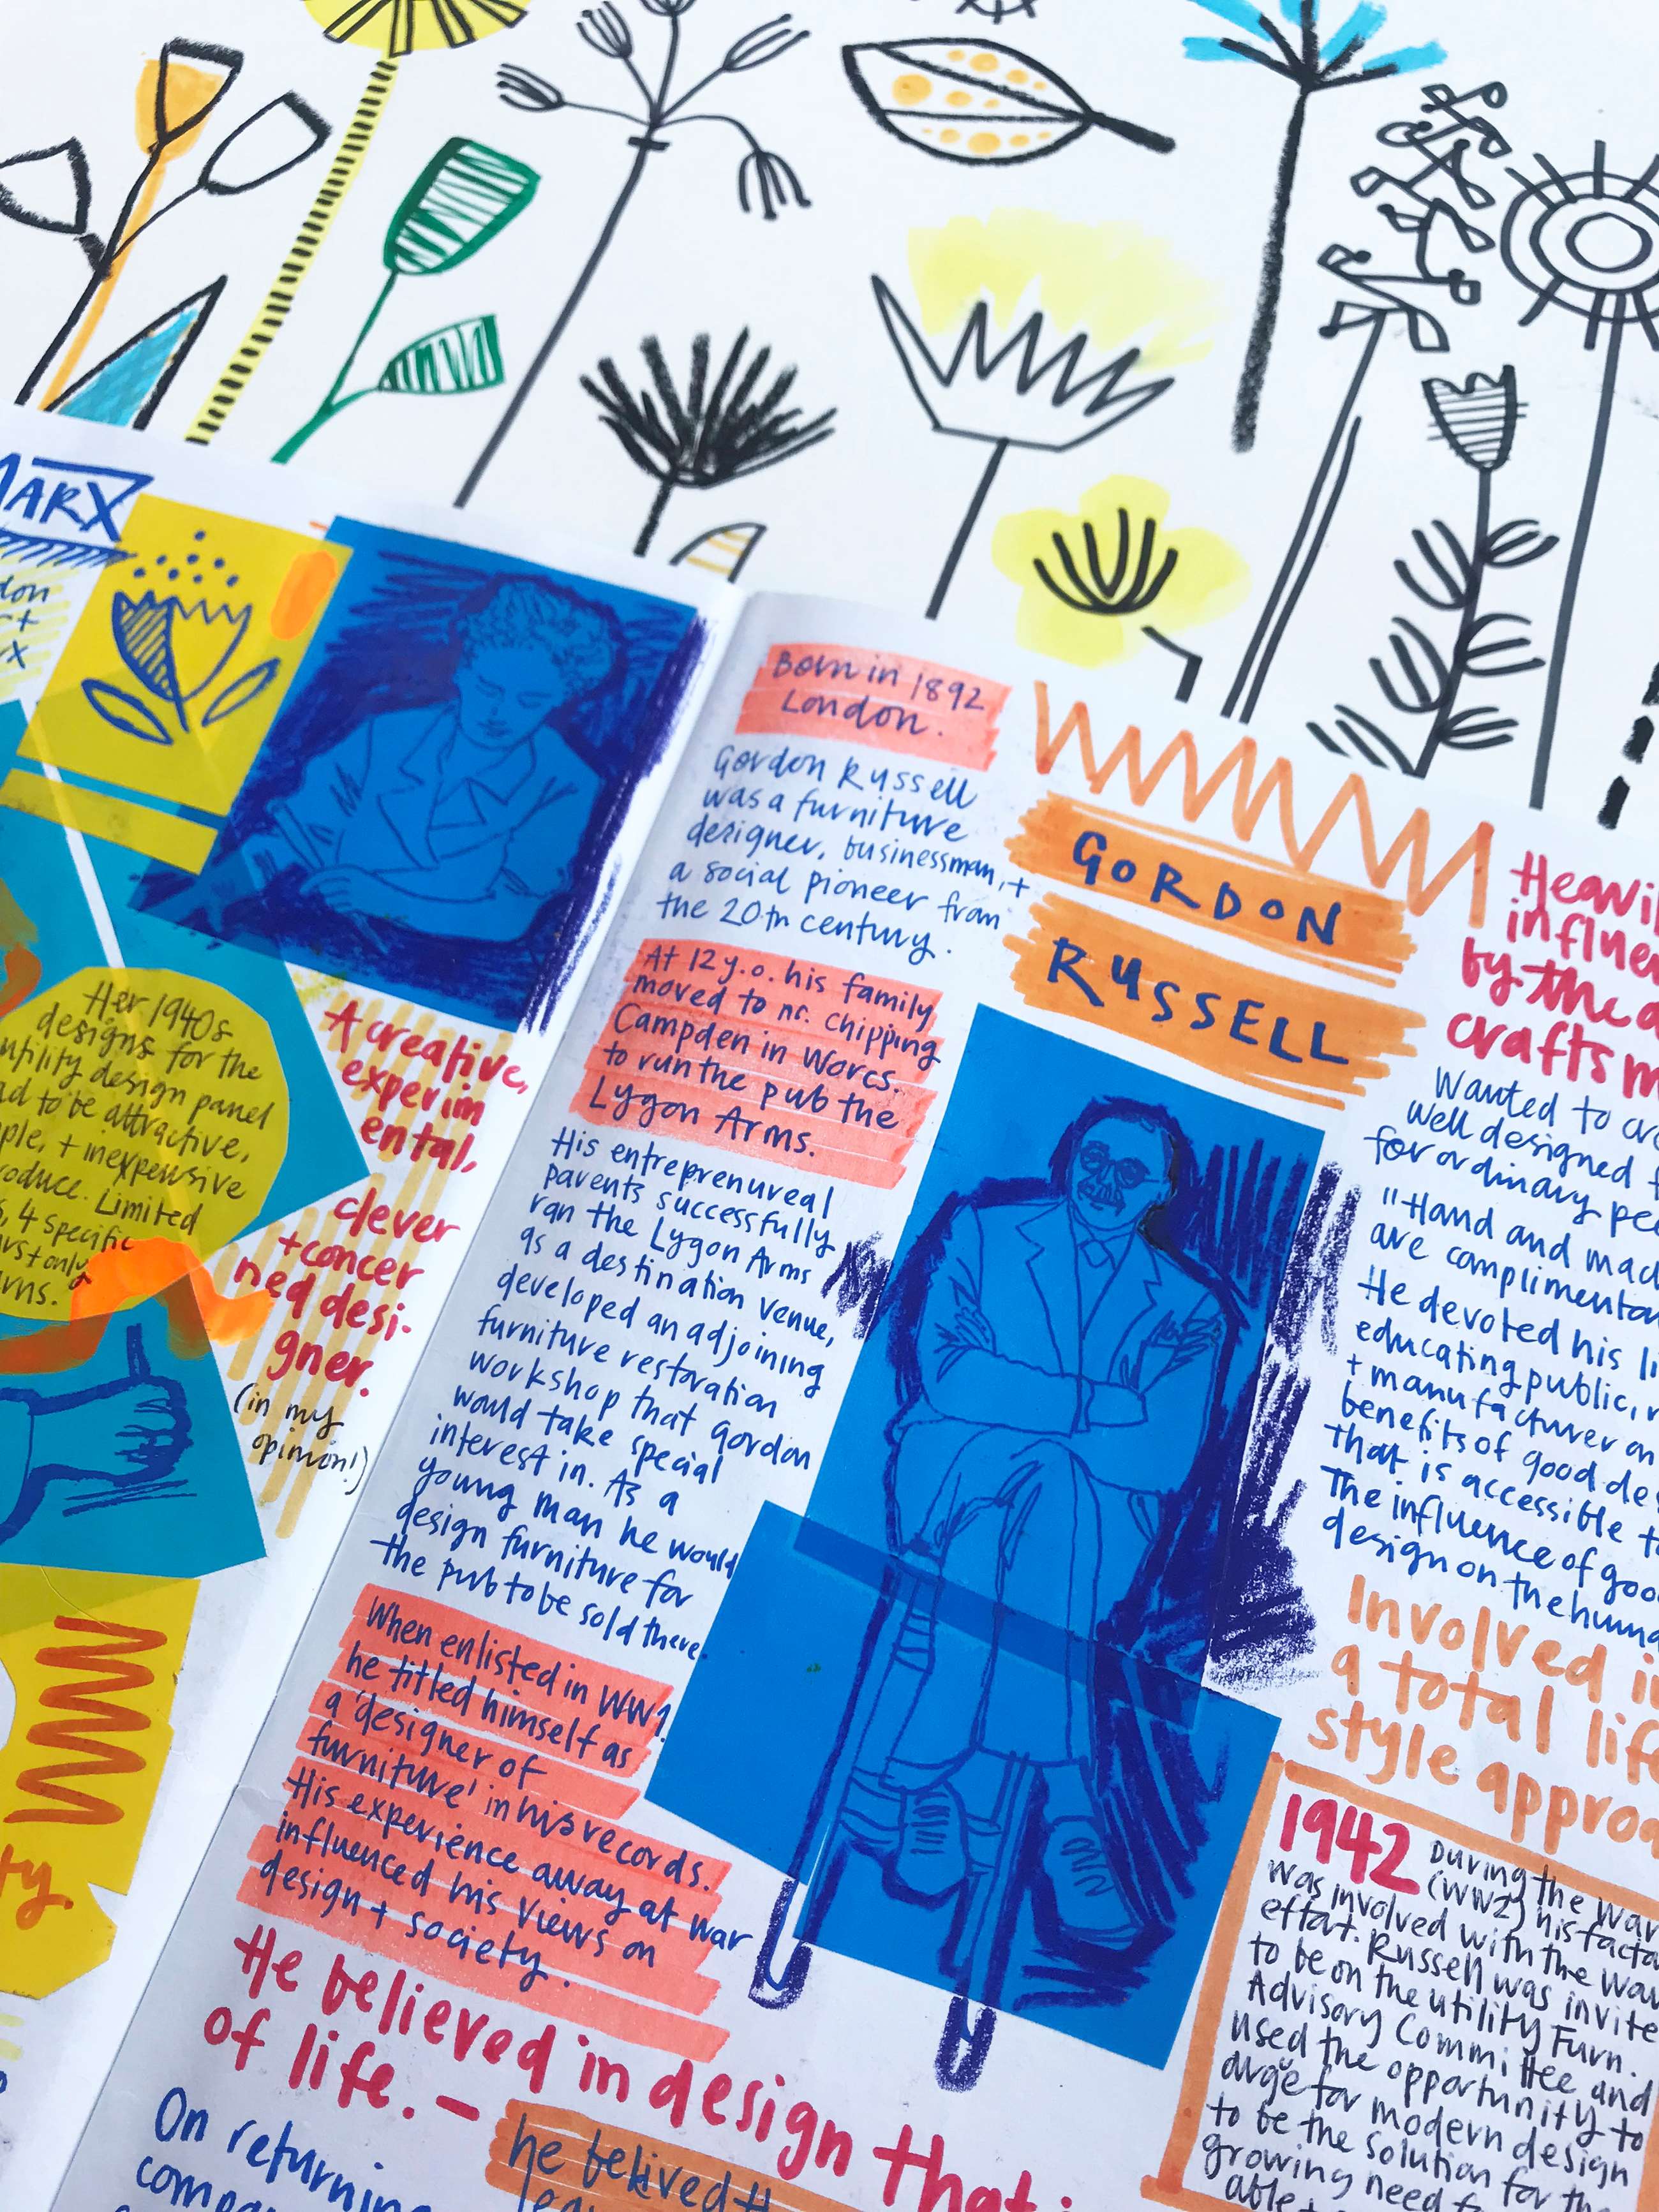 MARX
Her 1940s
designs for the
utility design panel
to be attractive,
+ inexpensive
Limited
4 specific
+ only
A creative,
experim
ental,
clever
+ concer
ned desi-
gner.
(in my
opinion!)
Born in 1892
London.
Gordon Russell
was a furniture
designer, businessman, +
a social pioneer from
the 20th century.
At 12 y.o. his family
moved to nr. Chipping
Campden in Worcs.
to run the pub the
Lygon Arms.
His entreprenureal
parents successfully
ran the Lygon Arms
as a destination venue,
developed an adjoining
furniture restoration
workshop that Gordon
would take special
interest in. As a
young man he would
design furniture for
the pub to be sold there.
When enlisted in WW1
he titled himself as
a 'designer of
furniture' in his records.
His experience away at war
influenced his views on
design + society.
He believed in design that
of life. –
On returning
he belived
GORDON
RUSSELL
by the
crafts
Wanted to
well designed
for ordinary
"Hand and
are
He devoted his
educating public,
+ manufacturer on
benefits of good
that is accessible
The influence of
design on the
Involved
a total
style
1942
During the War
(WW2) his
was involved with the War
effort. Russell was
to be on the utility Furn.
Advisory Committee and
used the opportunity to
for modern design
to be the solution for
growing need
able